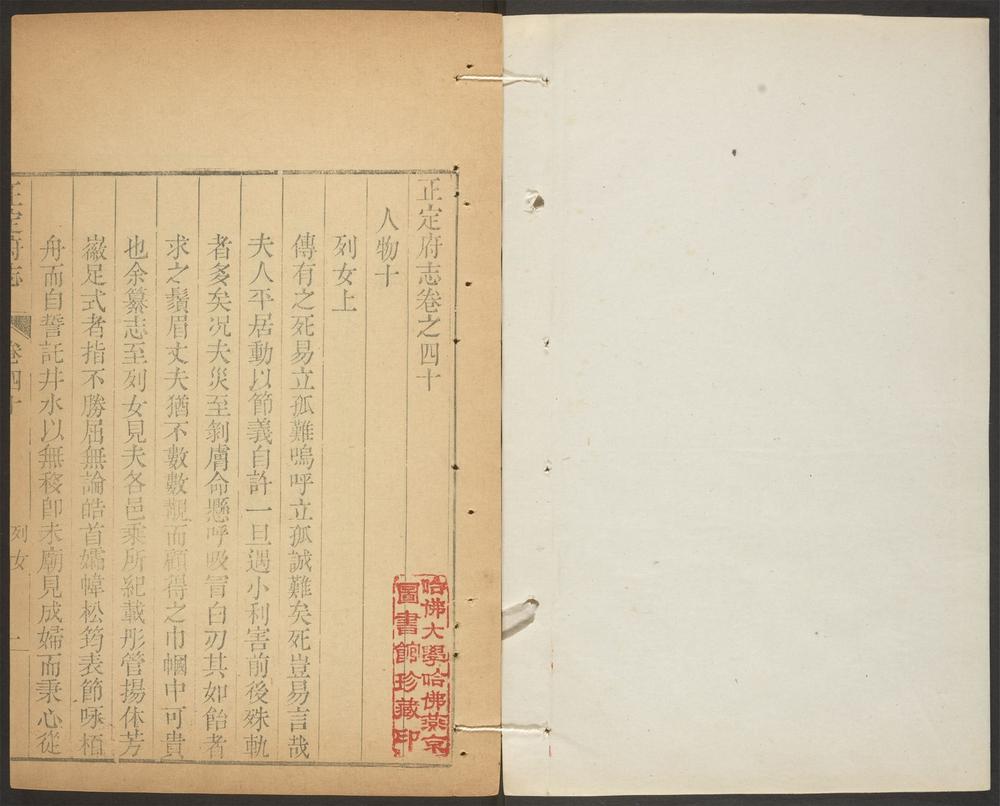 正定府志卷之四十
人物十
列女上
傳有之死易立孤難嗚呼立孤誠難矣死豈易言哉
夫人平居動以節義自許一旦遇小利害前後殊軌
者多矣况夫災至剝膚命懸呼吸冒白刃其如飴者
求之鬚眉丈夫猶不數數覯而顧得之巾幗中可貴
也余纂志至列女見夫各邑乗所紀載彤管揚休芳
徽足式者指不勝屈無論皓首孀幃松筠表節咏栢
舟而自誓託井水以無移卽未廟見成婦而秉心從
正定府志
卷四十
列女
一
哈佛大學哈佛燕京
圖書館珍藏印